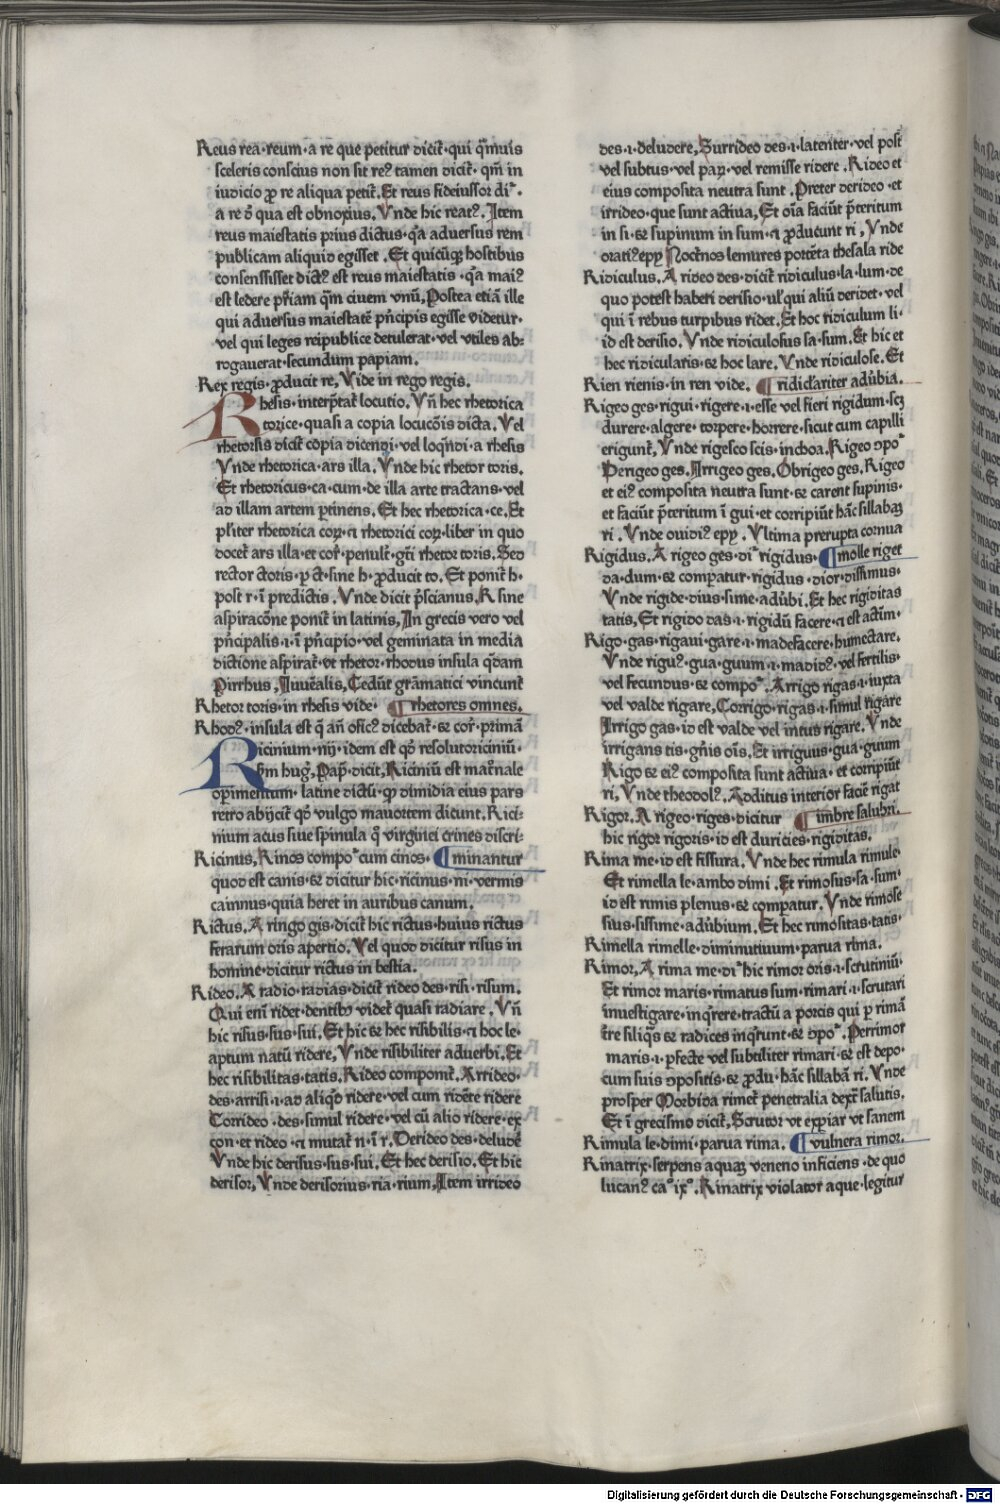 Reus rea·reum·a re que petitur dicit̃·qui q̃muis
sceleris conscius non sit reꝰ tamen dicit̃·qm̃ in
iudicio ꝓ re aliqua petit̃.Et reus fideiussor diᷣ·
a re ꝺ̃ qua est obnoxius.Vnde hic reatꝰ.Item
reus maiestatis prius dictus·q̃a aduersus rem
publicam aliquid egisset.Et quicũqꝫ hostibus
consensisset dictꝰ est reus maiestatis·q̃a maiꝰ
est ledere pr̃iam q̃m ciuem vnũ,Postea etiã ille
qui aduersus maiestatẽ pñcipis egisse videtur·
vel qui leges reipublice detulerat·vel vtiles ab-
rogauerat·secundum papiam.
Rex regis·ꝓducit re,Vide in rego regis.
Rhesis·interp̃tat̃ locutio.Vñ hec rhetorica
torice·quasi a copia locucõis dicta.Vel
rhetorsis dicit̃ copia dicendi·vel loqñdi·a rhesis
Vnde rhetorica·ars illa.Vnde hic rhetor toris.
Et rhetoricus·ca·cum·de illa arte tractans·vel
ad illam artem ꝑtinens.Et hec rhetorica·ce.Et
pl̃iter rhetorica coꝝ·⁊ rhetorici coꝝ·liber in quo
docet̃ ars illa·et cor̃·penult̃·gt̃i rhetor toris.Sed
rector ctoris·ꝑ ct·sine h·ꝓducit to.Et ponit̃ h·
post r·ĩ predictis.Vnde dicit p̃scianus.R sine
aspiracõne ponit̃ in latinis,In grecis vero vel
pñcipalis·i·ĩ pñcipio·vel geminata in media
dictione aspirat̃·vt rhetor·rhodus insula q̃dam
Pirrhus,Iuuẽalis,Cedũt gr̃amatici vincunt̃
Rhetor toris·in rhesis vide· ¶rhetores omnes.
Rhodꝰ·insula est q̃ añ oficꝰ dicebat̃·⁊ cor̃·primã
Ricinium·nij·idem est qđ resolutoriciniũ·
scđm hug̃,Pap̃·dicit,Riciniũ est mat̃nale
oꝑimentum·latine dictũ·qꝫ dimidia eius pars
retro abijcit̃ qđ vulgo mauortem dicunt.Rici-
nium acus siue spinula q̃ virginei crines discri-
Ricinus,Rinos compoᷣ cum cinos· ¶minantur
quod est canis·⁊ dicitur hic·ricinus·ni·vermis
caninus·quia heret in auribus canum.
Rictus.A ringo gis·dicit̃ hic rictus·huius rictus
ferarum oris apertio.Vel quod dicitur risus in
homine·dicitur rictus in bestia.
Rideo.A radio·radias·dicit̃ rideo des·risi·risum.
Qui eni ridet·dentibꝫ videt̃ quasi radiare.Vñ
hic risus·sus·sui.Et hic ⁊ hec risibilis·⁊ hoc le·
aptum natũ ridere,Vnde risibiliter aduerbi.Et
hec risibilitas·tatis.Rideo componit̃.Arrideo·
des·arrisi·i·ad aliqđ ridere·vel cum ridẽte ridere
Corrideo·des·simul ridere·vel cũ alio ridere·ex
con·et rideo·⁊ mutat̃ n·ĩ r.Derideo des·deludẽ
Vnde hic derisus·sus·sui.Et hec derisio.Et hic
derisor,Vnde derisorius·ria·rium,Item irrideo
des·i·deludere,Surrideo des·i·latenter·vel post
vel subtus·vel paꝝ·vel remisse ridere.Rideo et
eius composita neutra sunt.Preter derideo·et
irrideo·que sunt actiua,Et oĩa faciũt p̃teritum
in si·⁊ supinum in sum·⁊ ꝓducunt ri,Vnde
oratiꝰ epy Noct̃nos lemures portẽta thesala ride
Ridiculus.A rideo des·dicit̃ ridiculus·la·lum·de
quo potest haberi derisio·ul̓ qui aliũ deridet·vel
qui ĩ rebus turpibus ridet.Et hoc ridiculum li·
id est derisio.Vnde ridiculosus sa·sum.Et hic et
hec ridicularis·⁊ hoc lare.Vnde ridiculose.Et
Rien rienis·in ren vide. ¶ridicl̃ariter adũbia.
Rigeo ges·rigui·rigere·i·esse vel fieri rigidum·scꝫ
durere·algere·torpere·horrere·sicut cum capilli
erigunt̃.Vnde rigesco scis·inchoa.Rigeo ↄpoᷣ
Perrigeo ges.Arrigeo ges.Obrigeo ges.Rigeo
et eiꝰ composita neutra sunt·⁊ carent supinis·
et faciũt p̃teritum ĩ gui·et corripiũt hãc sillabaꝫ
ri.Vnde ouidiꝰ epy.Vltima prerupta cornua
Rigidus.A rigeo ges·diᷣ rigidus· ¶molle riget
da·dum·⁊ comꝑatur·rigidus·dior·dissimus·
Vnde rigide·dius·sime·adũbi.Et hec rigiditas
tatis,Et rigido das·i·rigidũ facere·⁊ est actim·
Rigo·gas·rigaui·gare·i·madefacere·humectare.
Vnde riguꝰ·gua·guum·i·madidꝰ·vel fertilis·
vel fecundus·⁊ compoᷣ.Arrigo rigas·i·iuxta
vel valde rigare,Corrigo·rigas·i·simul rigare
Irrigo gas·id est valde vel intus rigare.Vnde
irrigans tis·gñis oĩs.Et irriguus·gua·guum
Rigo ⁊ eiꝰ composita sunt actiua·et corripiũt
ri,Vnde theodolꝰ.Additus interior faciẽ rigat
Rigor.A rigeo·riges·dicitur ¶imbre salubri.
hic rigor rigoris·id est duricies·rigiditas.
Rima me·id est fissura.Vnde hec rimula rimule·
Et rimella le·ambo dimi.Et rimosus·sa·sum·
id est rimis plenus·⁊ comꝑatur.Vnde rimose
sius·sissime·adũbium.Et hec rimositas·tatis·
Rimella rimelle·diminutiuum·parua rima.
Rimor.A rima me·diᷣ hic rimor oris·i·scrutiniũ·
Et rimor maris·rimatus sum·rimari·i·scrutari
inuestigare·inq̃rere·tractũ a porcis qui ꝑ rimã
t̃re siliq̃s ⁊ radices inq̃runt·⁊ ↄpoᷣ.Perrimor
maris·i·ꝑfecte vel subtiliter rimari·⁊ est depo·
cum suis ↄpositis·⁊ ꝓdu·hãc sillabã ri.Vnde
prosper Morbida rimet̃ penetralia dext̃ salutis.
Et ĩ grecismo dicit̃,Scrutor vt expiar vt sanem
Rimula le·dimi·parua rima. ¶vulnera rimor.
Rinatrix·serpens aquaꝫ veneno inficiens·de quo
lucanꝰ caᵒ ixᵒ.Rinatrix violator aque·legitur
Digitalisierung gefördert durch die Deutsche Forschungsgemeinschaft - DFG